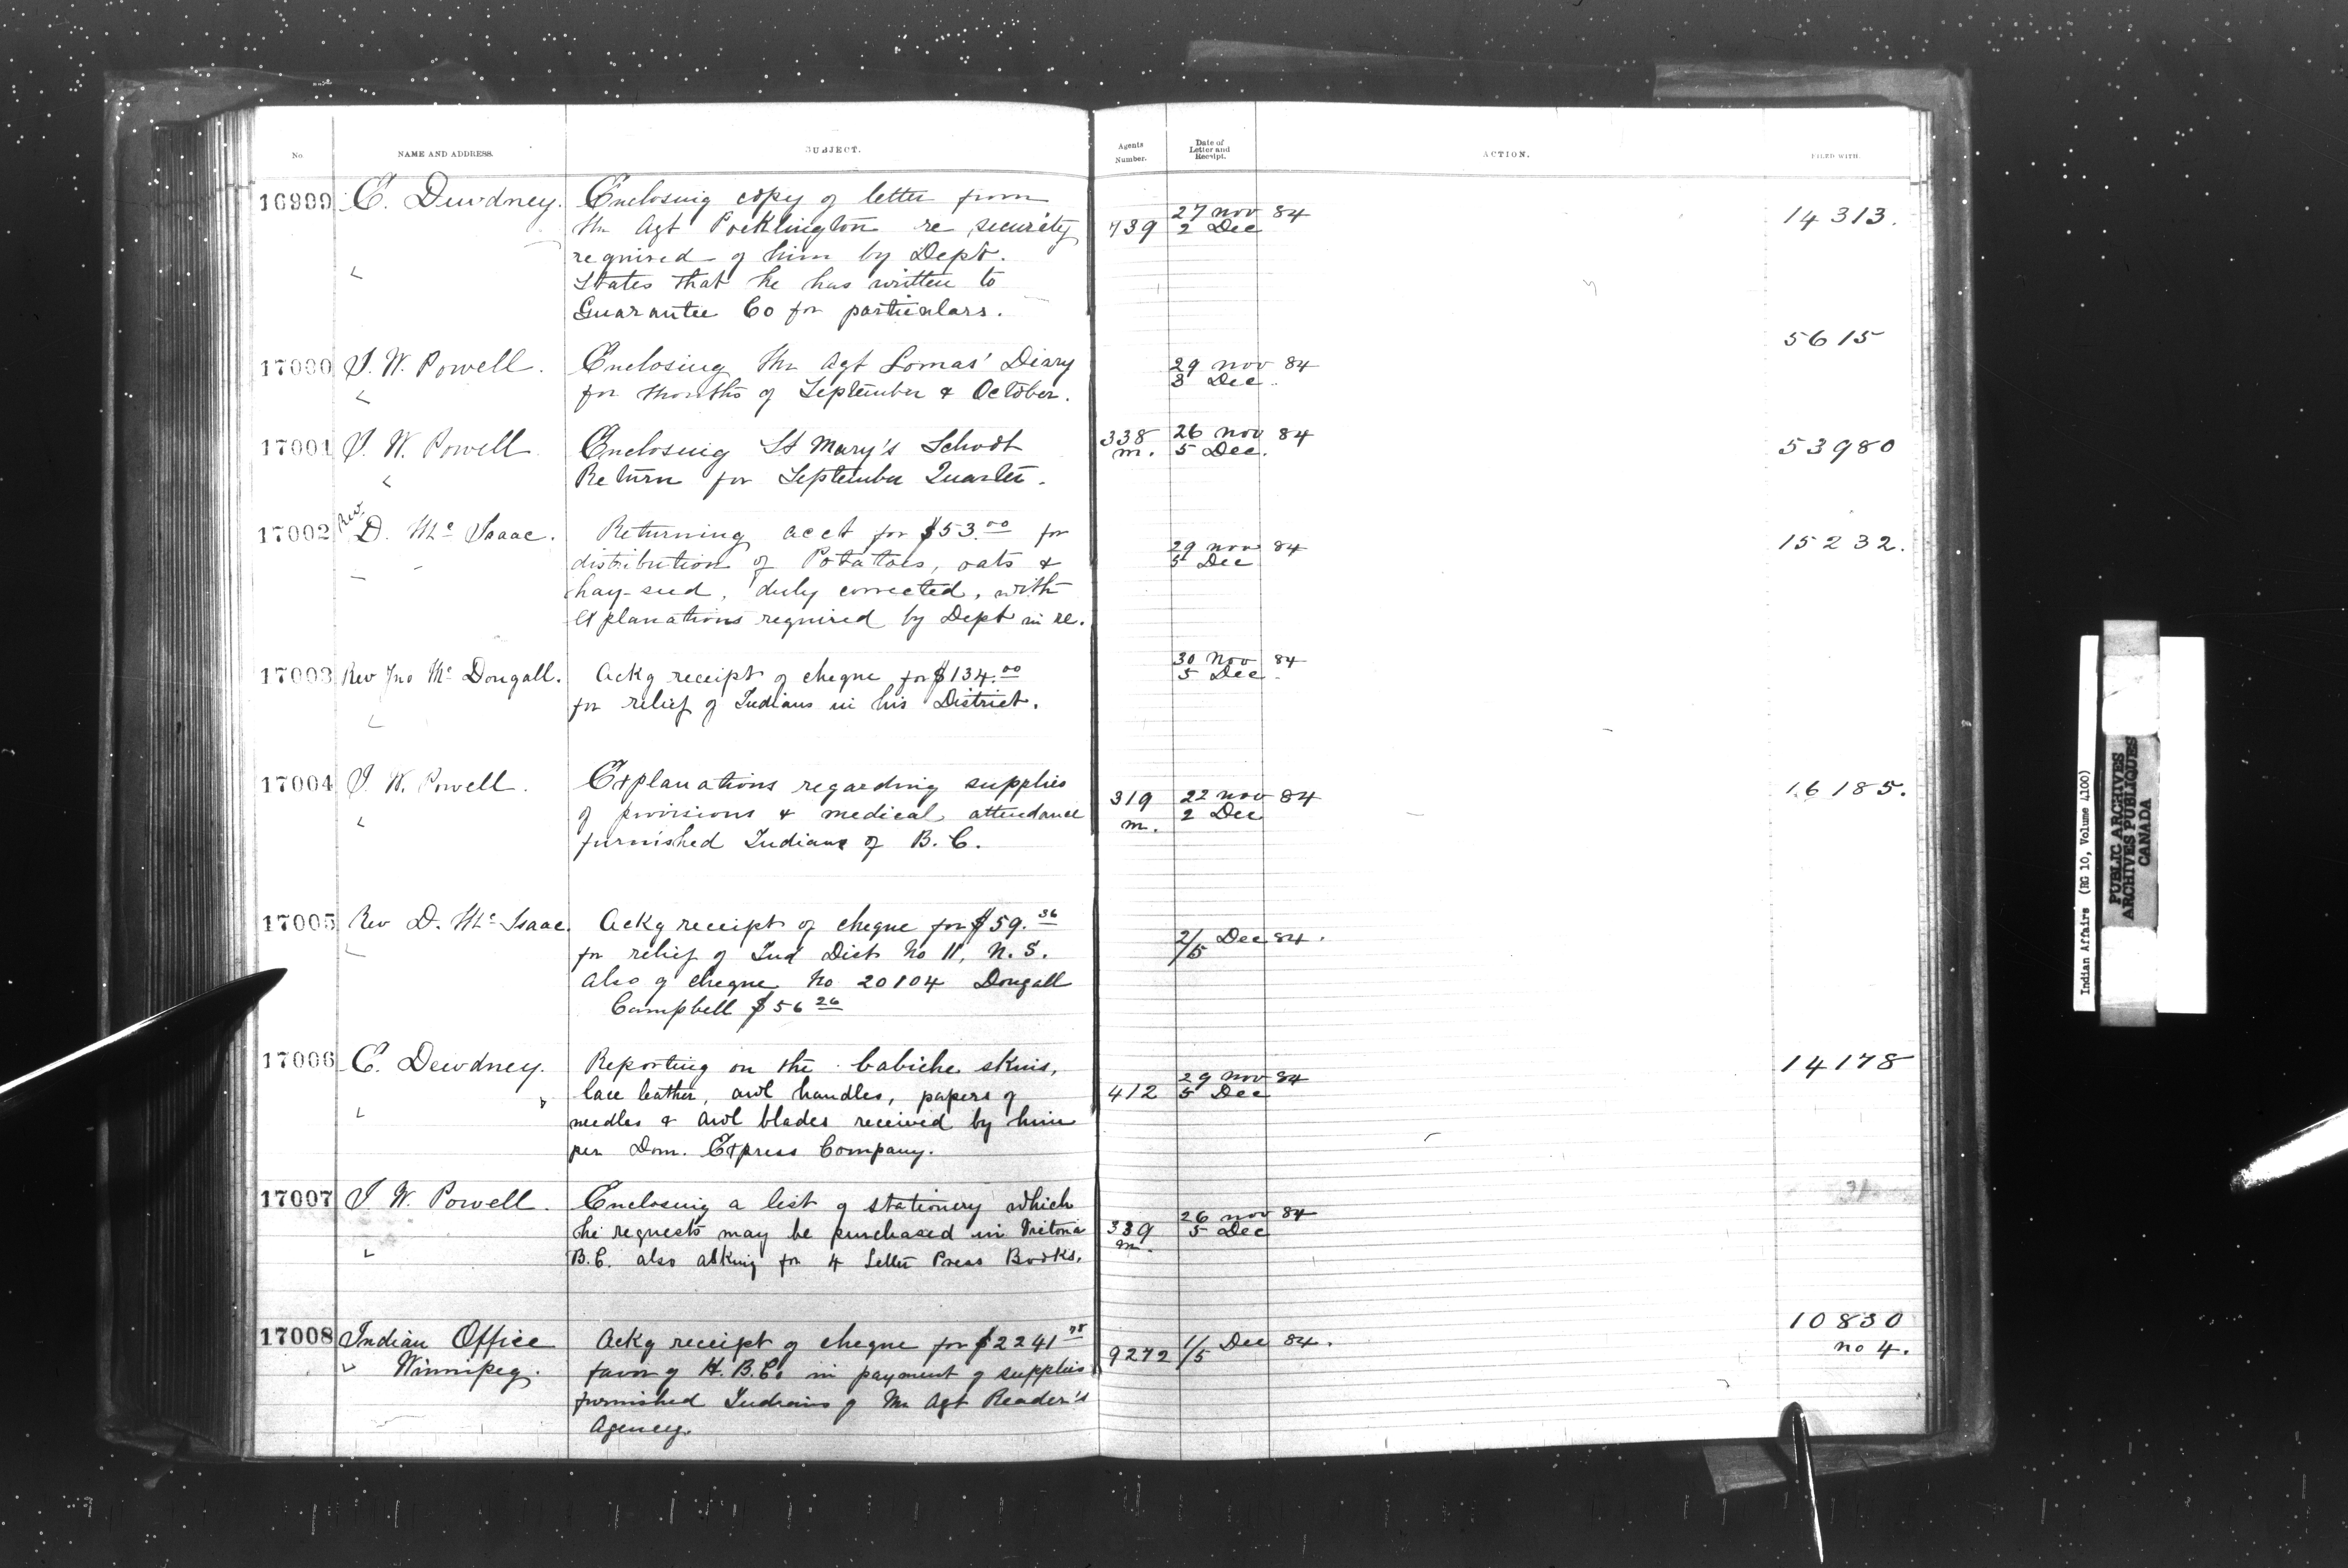 No. NAME AND ADDRESS. SUBJECT. Agents Number. Date of Letter and Receipt. ACTION. FILED WITH.
16999 E. Dewdney. Enclosing copy of letter from 27 Nov 84 14313.
Mr Agt Pocklington re security 739 2 Dec
required of him by Dept.
States that he has written to
Guarantee Co for particulars.
5615
17000 I. W. Powell. Enclosing Mr Agt Lomas' Diary 29 Nov 84
for months of September & October. 3 Dec.
17001 I. W. Powell Enclosing St Mary's School 338 26 Nov 84 53980
m. 5 Dec.
Return for September Quarter.
17002 Rev D. Mc Isaac. Returning acct for $53.00 for 29 Nov 84 15232.
distribution of Potatoes, oats & 5 Dec
hay-seed, duly corrected, with
explanations required by Dept in re.
17003 Rev Jno Mc Dougall. Ackg receipt of cheque for $134.00 30 Nov 84
5 Dec
for relief of Indians in his District.
17004 I. W. Powell. Explanations regarding supplies 319 22 Nov 84 16185.
of provisions & medical attendance m. 2 Dec
furnished Indians of B. C.
17005 Rev D. Mc Isaac. Ackg receipt of cheque for $59.36 2/5 Dec 84.
for relief of Ind Dist No 11, N. S.
Also of cheque No 20104 Dougall
Campbell $56 26
17006 E. Dewdney. Reporting on the babiche skins, 29 Nov 84 14178
lace leather, awl handles, papers of 412 5 Dec
needles & awl blades received by him
per Dom. Express Company.
17007 I. W. Powell. Enclosing a list of stationery which 26 Nov 84
he requests may be purchased in Victoria 339 5 Dec
m.
B.C. also asking for 4 Letter Press Books.
10830
17008 Indian Office Ackg receipt of cheque for $2241 78 9272 1/5 Dec 84. no 4.
Winnipeg. favor of H. B. Co in payment of supplies
furnished Indians of Mr Agt Reader's
Agency.
Indian Affairs (RG 10, Volume 4100)
PUBLIC ARCHIVES
ARCHIVES PUBLIQUES
CANADA